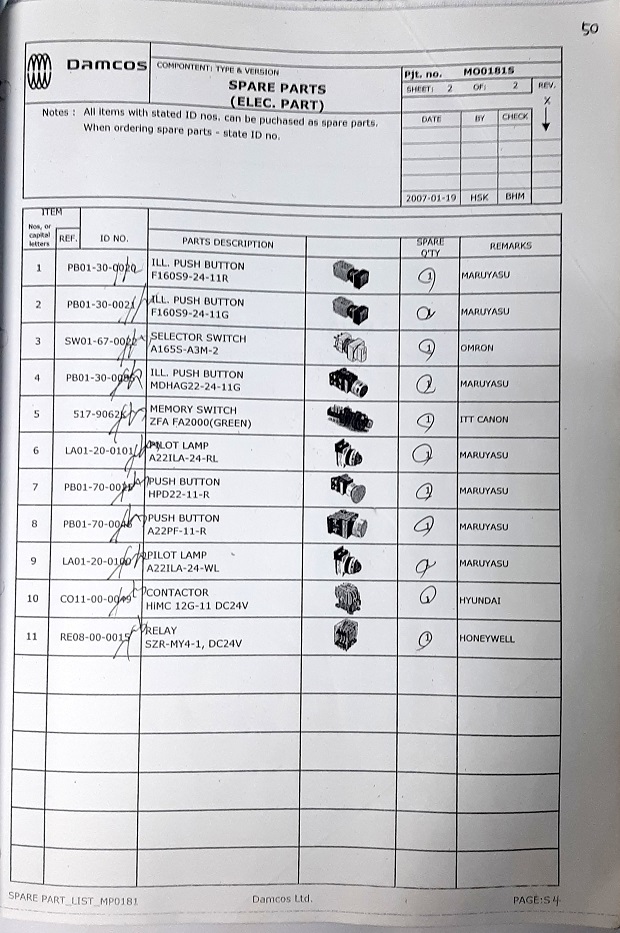 50
Damcos
COMPONTENT: TYPE & VERSION
SPARE PARTS
(ELEC. PART)
Pjt. no. MO01815
SHEET: 2 OF: 2 REV.
X
Notes : All items with stated ID nos. can be puchased as spare parts.
When ordering spare parts - state ID no.
DATE BY CHECK
2007-01-19 HSK BHM
ITEM
Nos, or capital letters REF. ID NO. PARTS DESCRIPTION SPARE Q'TY REMARKS
1 ILL. PUSH BUTTON 1 MARUYASU
F160S9-24-11R
2 ILL. PUSH BUTTON MARUYASU
F160S9-24-11G
3 SELECTOR SWITCH 1 OMRON
A165S-A3M-2
4 ILL. PUSH BUTTON MARUYASU
MDHAG22-24-11G
5 MEMORY SWITCH 1 ITT CANON
ZFA FA2000(GREEN)
6 LA01-20-0101 PILOT LAMP MARUYASU
A22ILA-24-RL
7 PUSH BUTTON 1 MARUYASU
HPD22-11-R
8 PUSH BUTTON 1 MARUYASU
A22PF-11-R
9 PILOT LAMP MARUYASU
A22ILA-24-WL
10 CONTACTOR HYUNDAI
HiMC 12G-11 DC24V
11 RE08-00-0015 RELAY 1 HONEYWELL
SZR-MY4-1, DC24V
SPARE PART_LIST_MP0181 Damcos Ltd. PAGE:S4